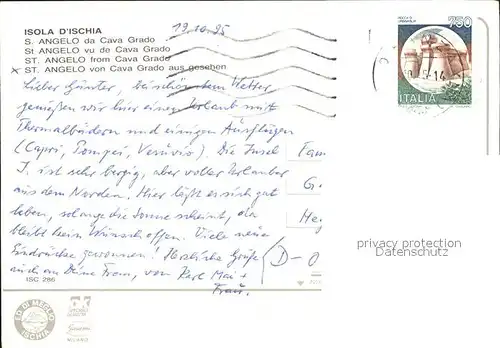 ISOLA D'ISCHIA
S. ANGELO da Cava Grado
St ANGELO vu de Cava Grado
ST. ANGELO from Cava Grado
x ST. ANGELO von Cava Grado aus gesehen
19.10.95
750
ITALIA
Lieber Günter, bei schönstem Wetter
genießen wir hier einen Urlaub mit
Thermalbädern und einigen Ausflügen
(Capri, Pompei, Vesuvio). Die Insel
I. ist sehr bergig, aber voller Urlauber
aus dem Norden. Hier läßt es sich gut
leben, solange die Sonne scheint, da
bleibt kein Wunsch offen. Viele neue
Eindrücke gewonnen! Herzliche Grüße
auch an Deine Frau, von Karl Mai +
Frau.
Fam
G.
He
(D-0
privacy protection
Datenschutz
ISC 286
ED. DI MEGLIO
ISCHIA